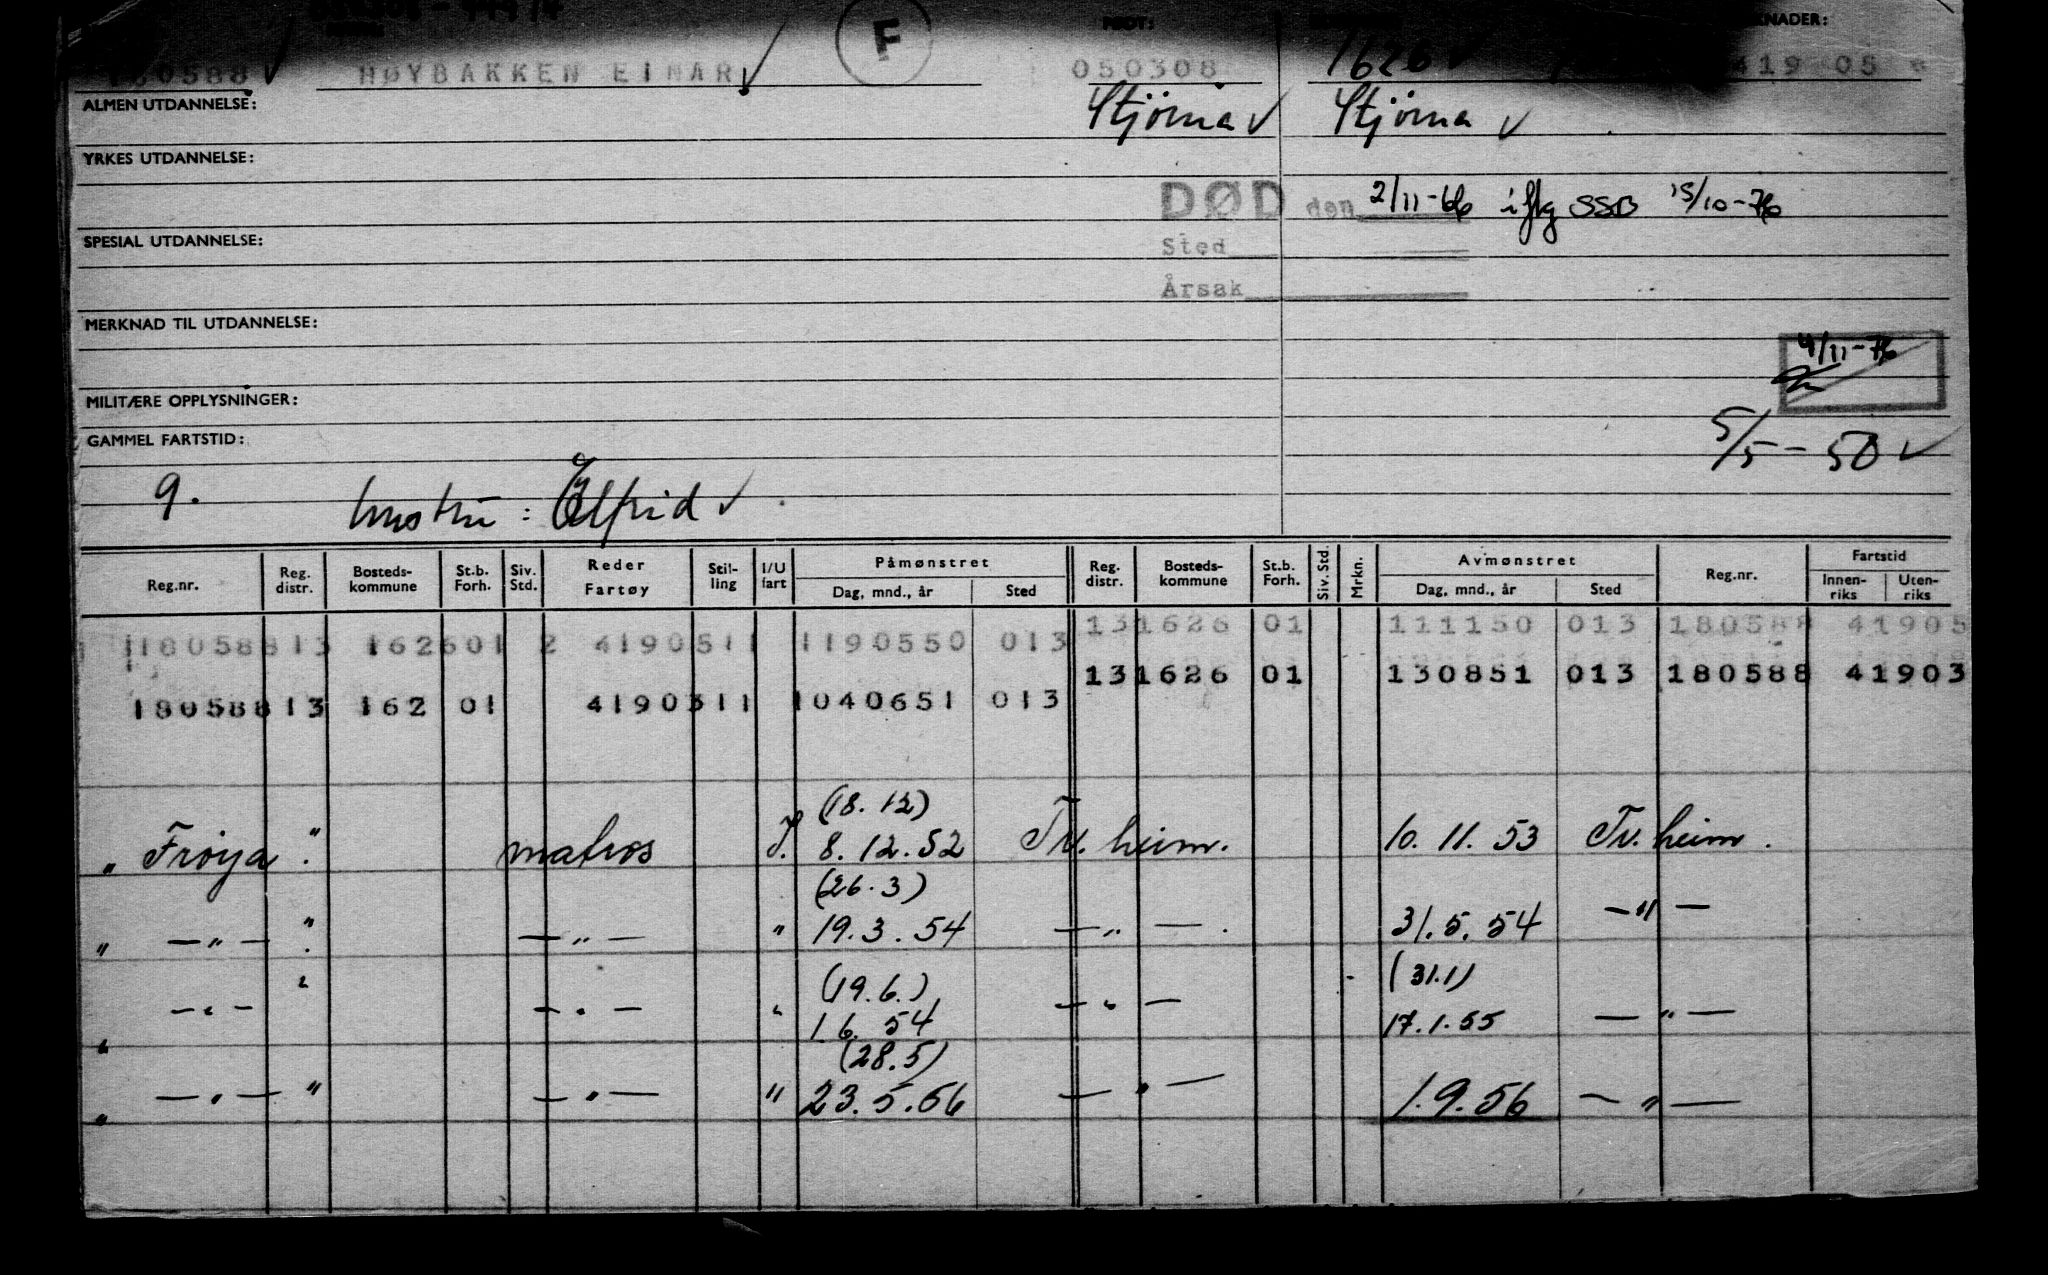 F FØDT: KNADER:
180588 HØYBAKKEN EINAR 050308 1626 419 05
ALMEN UTDANNELSE: Stjørna Stjørna
YRKES UTDANNELSE:
DØD den 2/11-66 iflg SSB 15/10-76
SPESIAL UTDANNELSE: Sted
Årsak
MERKNAD TIL UTDANNELSE:
4/11-76
MILITÆRE OPPLYSNINGER:
GAMMEL FARTSTID: 5/5-50
9. hustru: Ølfrid
Reg.nr. Reg. distr. Bosteds-kommune St.b. Forh. Siv. Std. Reder Fartøy Stil-ling I/U fart Påmønstret Dag, mnd., år Sted Reg. distr. Bosteds-kommune St.b. Forh. Siv. Std. Mrkn. Avmønstret Dag, mnd., år Sted Reg.nr. Fartstid Innen-riks Uten-riks
118058813 162601 2 4190511 1190550 013 131626 01 111150 013 180588 41905
131626 01 130851 013 180588 41903
18058813 162 01 4190311 1040651 013
(18.12)
" Frøya " matros I. 8.12.52 Tr.heim. 10.11.53 Tr.heim.
(26.3)
" —"— " —"— " 19.3.54 —"— 31.5.54 —"—
(19.6.) (31.1)
" —"— " —"— " 1 6. 54 —"— 17.1.55 —"—
(28.5)
" —"— " —"— " 23.5.56 —"— 1.9.56 —"—